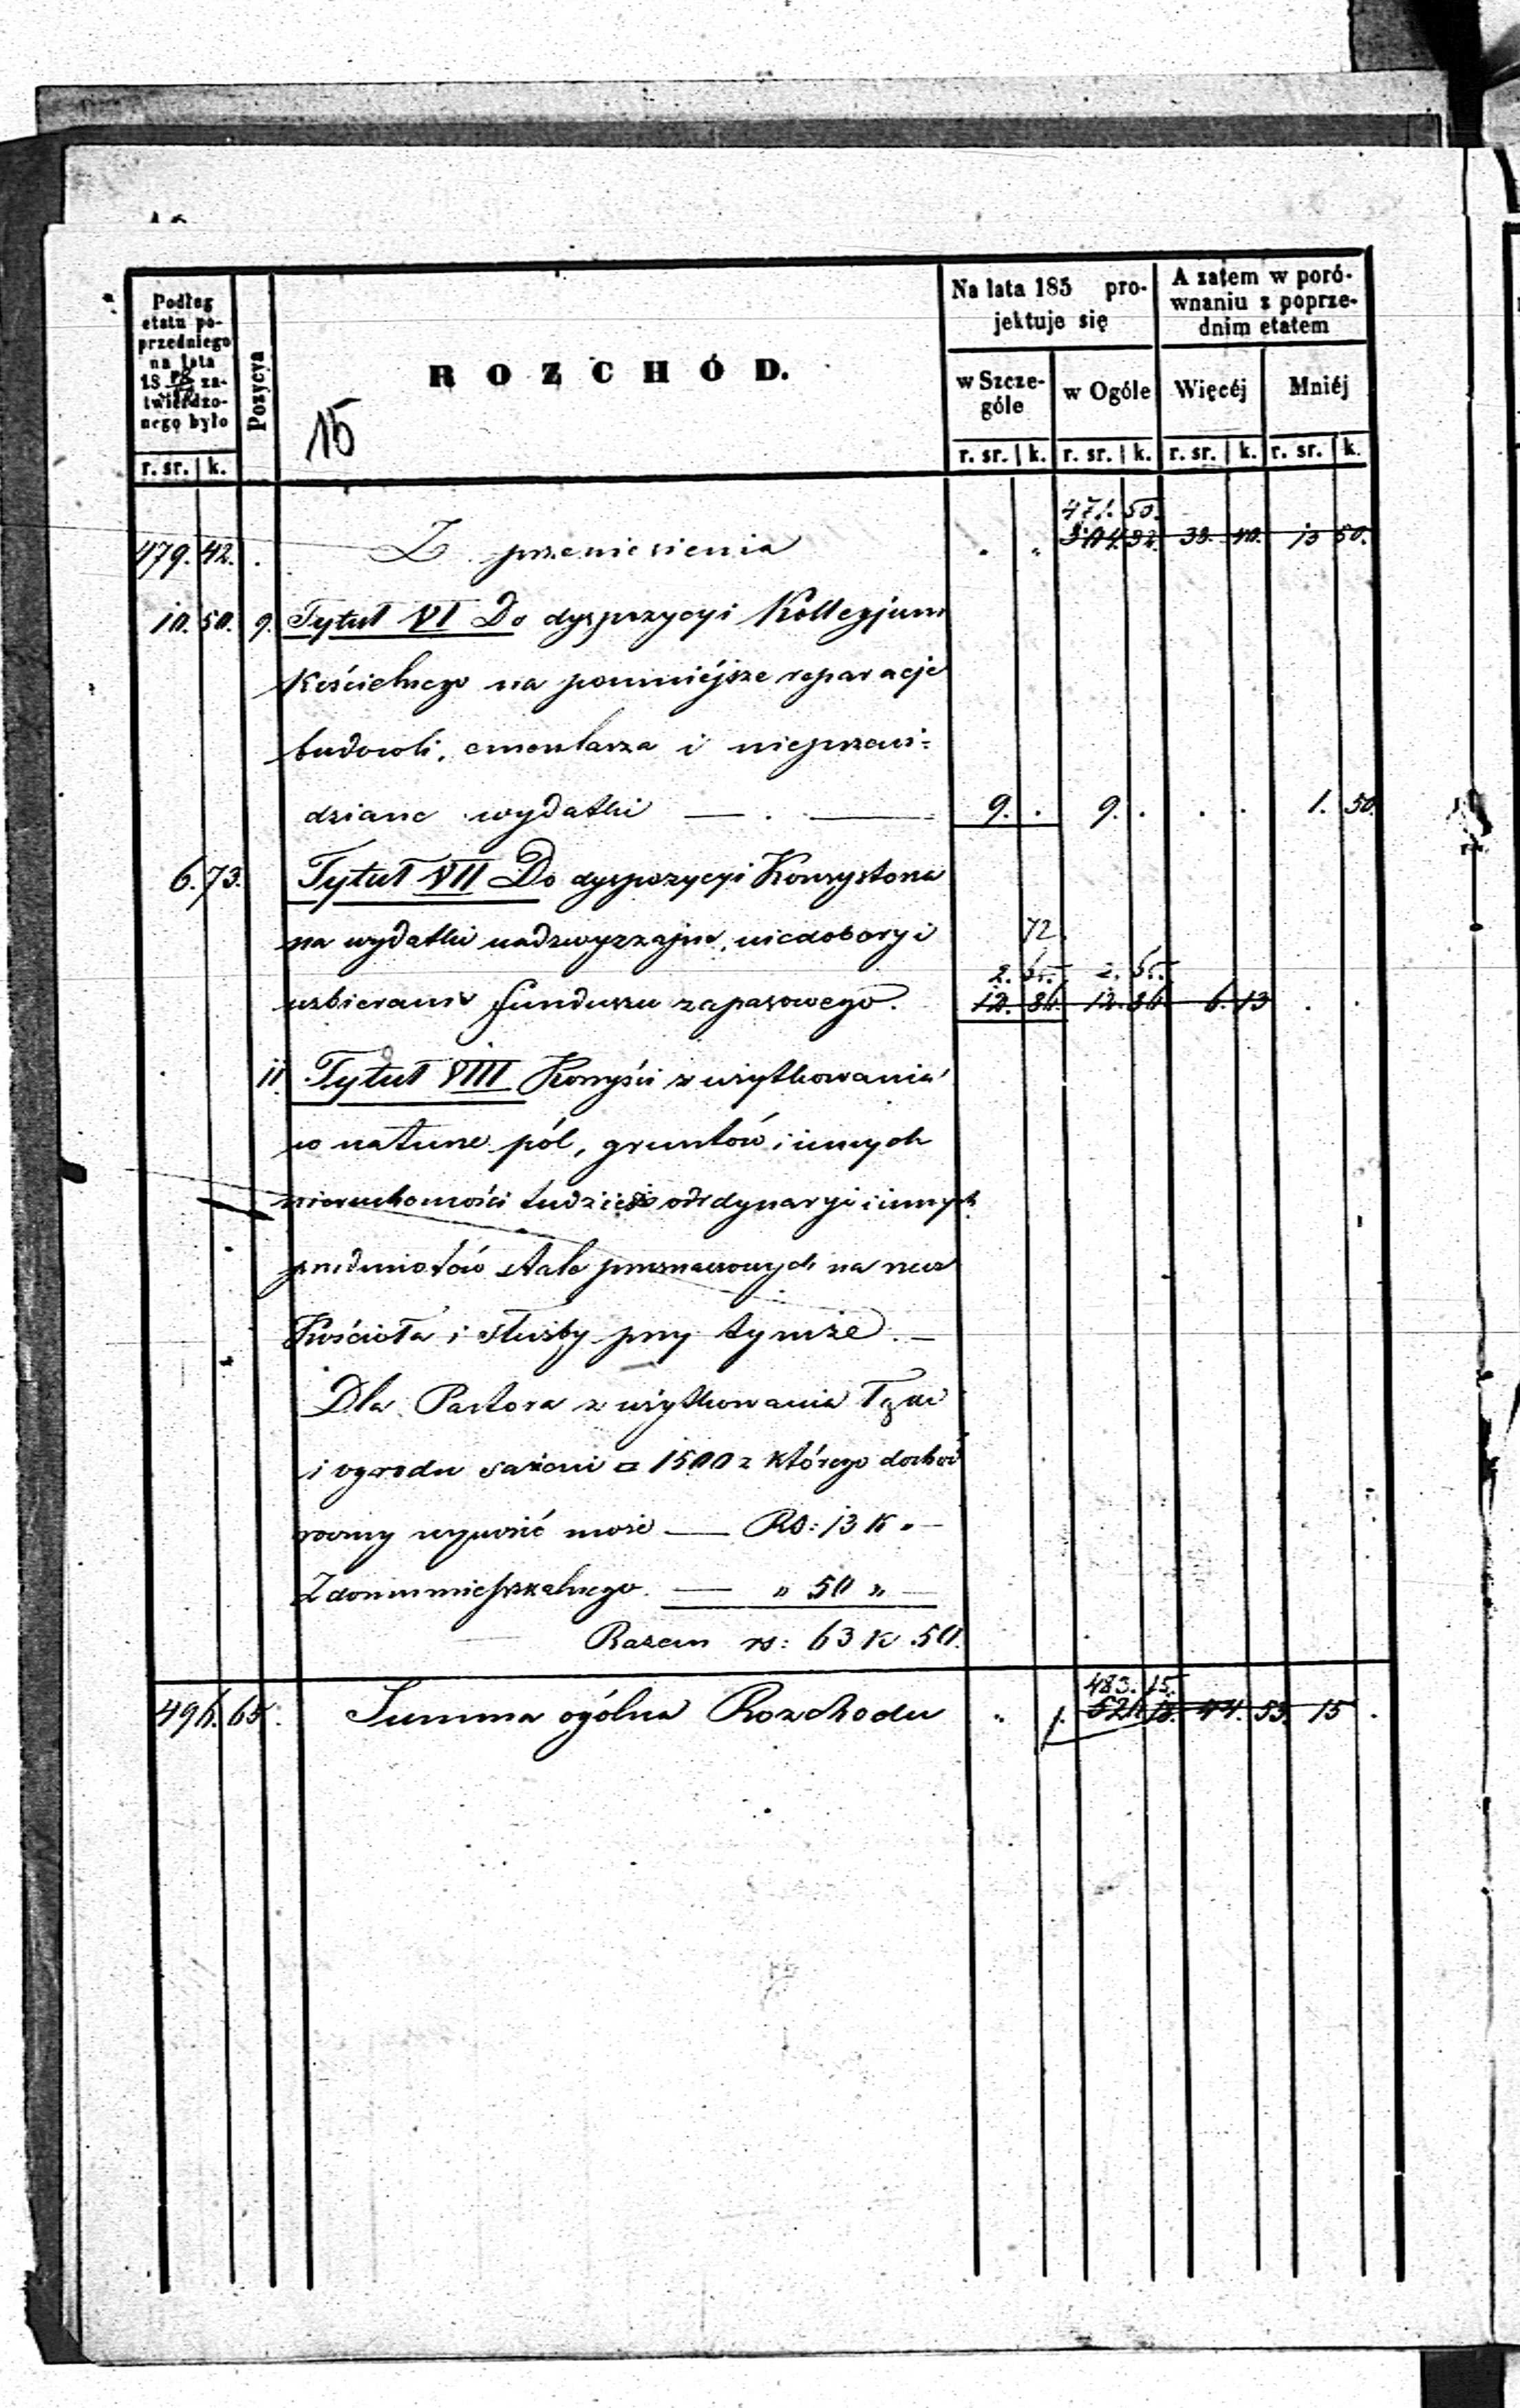 Podług etatu poprzedniego na lata 18 zatwierdzonego było
Pozycya
ROZCHÓD.
15
Na lata 185 projektuje się
A zatem w porównaniu z poprzednim etatem
w Szczególe
w Ogóle
Więcéj
Mniéj
r. sr. k. r. sr. k. r. sr. k. r. sr. k. r. sr. k.
471. 50.
479. 42. Z przeniesienia 13 50.
10. 50. 9. Tytuł VI Do dyspozycyi Kollegjum
Kościelnego na pomniéjsze reparacje
budowli, cmentarza i nieprzewi=
dziane wydatki — . — 9. . 9. . . . 1. 50.
6. 73. Tytuł VII Do dyspozycyi Konsystorza
na wydatki nadzwyczajne, niedobory i 72
2. 65. 2. 65.
uzbieranie funduszu zapasowego. 12. 86. 12. 86. 6. 13 . .
11. Tytuł VIII Korzyści z użytkowania
w naturze pól, gruntów i innych
nieruchomości tudzież ordynaryi i innych
przedmiotów stale przeznaczonych na rzecz
Kościoła i służby przy tymże. —
Dla Pastora z użytkowania Łąki
i ogrodu sażeni □ 1500 z którego dochód
roczny wynosić może — Rs: 13 K „ —
Z domu mieszkalnego. — „ 50 „ —
Razem rs: 63 K. 50.
483. 15.
496. 65. Summa ogólna Rozchodu „ 1. 526. 18. 44. 53. 15 .